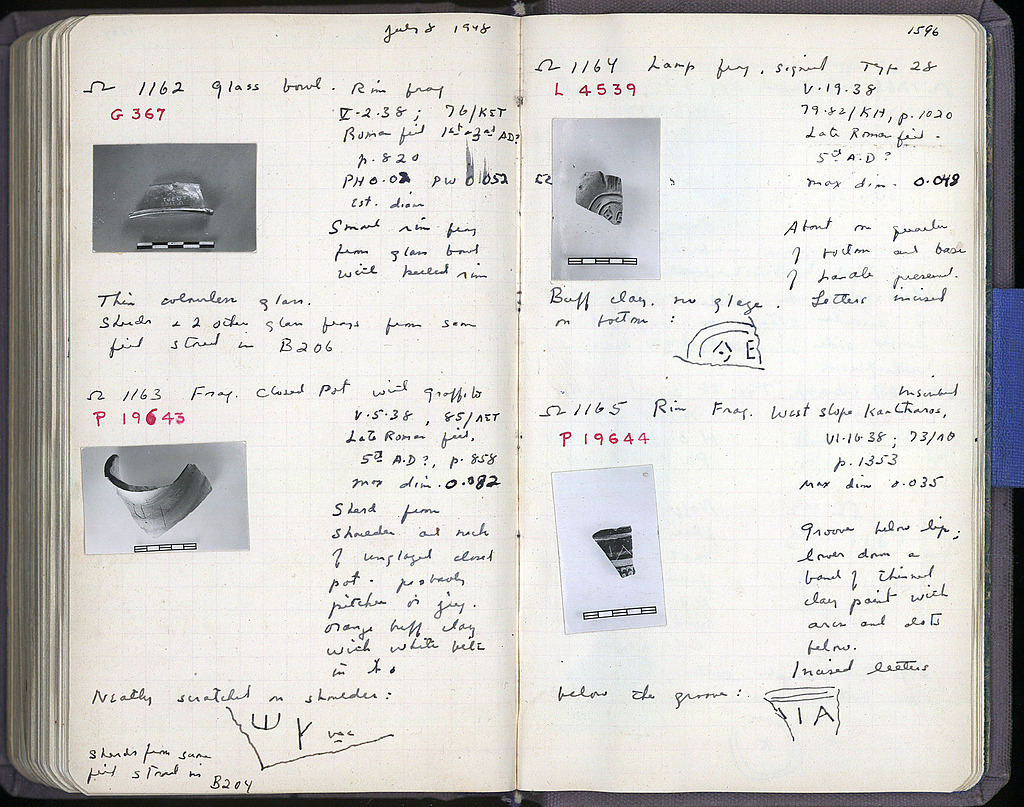 July 8 1948
Ω 1162 Glass bowl. Rim frag
G 367
V-2-38; 76/KET
Roman fill 1st-3rd AD?
p. 820
PH 0.02 PW 0.052
Est. diam
Small rim frag
from glass bowl
with beaded rim
Thin colourless glass.
Sherds & 2 other glass frags from same
fill stored in B206
Ω 1163 Frag. closed pot with graffito
P 19643
V-5-38, 85/
Late Roman fill,
5th A.D?, p. 858
max dim. 0.082
Sherd from
shoulder at neck
of unglazed closed
pot. probably
pitcher or jug.
orange buff clay
with white bits
in it.
Neatly scratched on shoulder:
vac
Sherds from same
fill stored in B204
1596
Ω 1164 Lamp frag. signed Type 28
L 4539
V-19-38
79-82/KH, p. 1020
Late Roman fill.
5th A.D?
max dim. 0.048
About one quarter
of bottom and base
of handle present.
Buff clay. no glaze. Letters incised
on bottom:
E
Inscribed
Ω 1165 Rim Frag. West slope Kantharos,
P 19644
VI-16-38; 73/
p. 1353
max dim 0.035
Groove below lip;
lower down a
band of thinned
clay paint with
arcs and dots
below.
Incised letters
below the groove:
IA